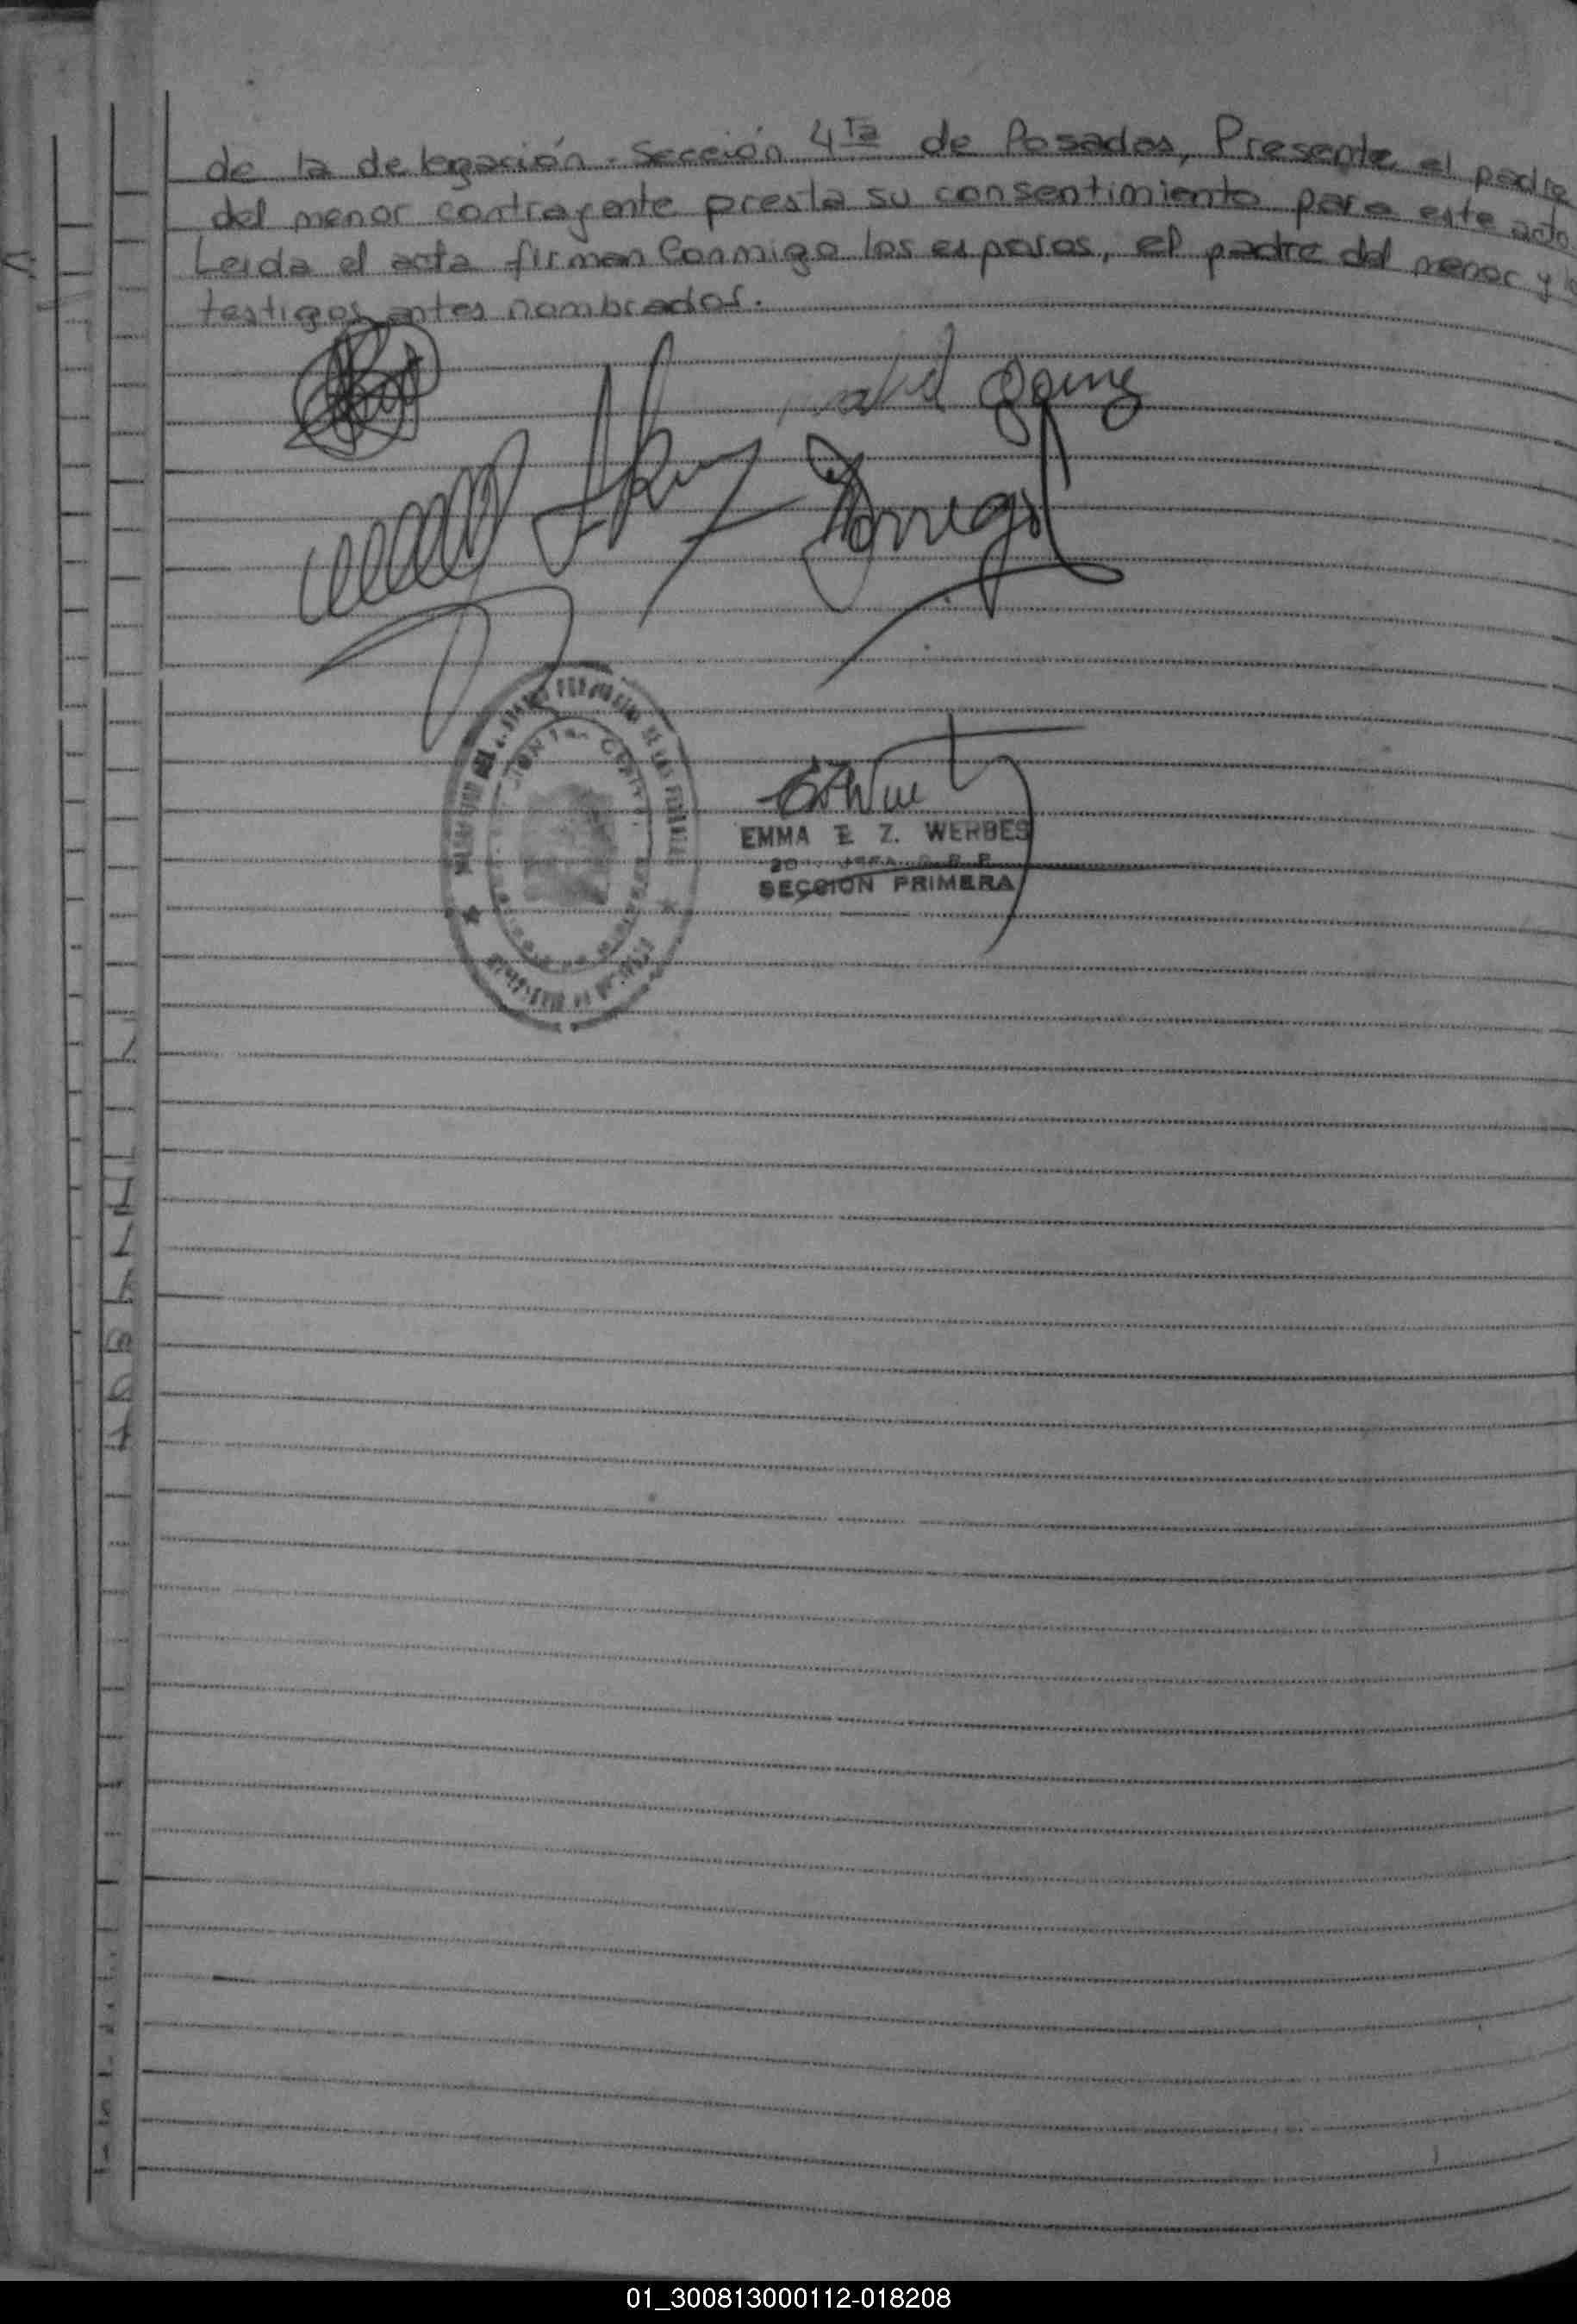 de la delegación - Sección 4ta de Posadas, Presente el padre
del menor contrayente presta su consentimiento para este acto.
Leida el acta firman Conmigo los esposos, el padre del menor y
testigos antes nombrados.
EMMA E Z. WERBES
SECCION PRIMERA
01_300813000112-018208